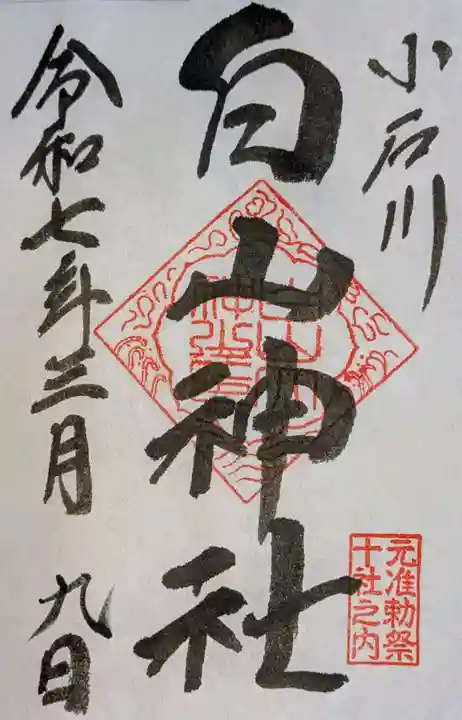 小石川
白山神社
元准勅祭
十社之内
令和七年三月 九日